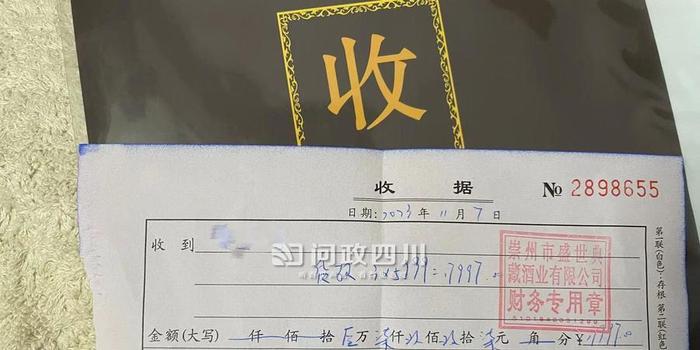 收
收据
№ 2898655
日期: 2023 年 11 月 7 日
收到
问政四川
3×5999=17997.00
崇州市盛世典
藏酒业有限公司
财务专用章
金额(大写) 仟 佰 拾 壹万 柒仟 玖佰 玖拾 柒元 角 分 ¥17997.00
第一联(白色):存根 第二联(红色